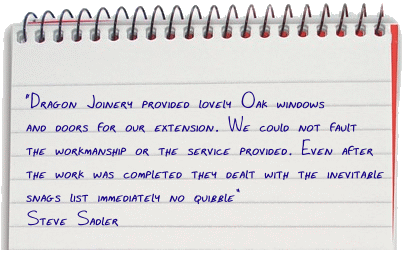 "Dragon Joinery provided lovely Oak windows
and doors for our extension. We could not fault
the workmanship or the service provided. Even after
the work was completed they dealt with the inevitable
snags list immediately no quibble"
Steve Sadler